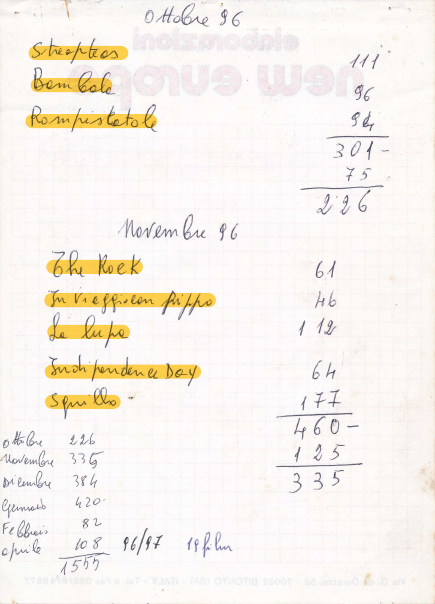 Ottobre 96
Streapteas 111
Bambole 96
Rompiscatole 94
301 -
75
226
Novembre 96
The Rock 61
In Viaggio con pippo 46
La lupa 112
Indipendence Day 64
Squillo 177
460 -
125
335
Ottobre 226
Novembre 335
Dicembre 384
Gennaio 420
Febbraio 82
aprile 108 96/97 19 film
1555
elaborazioni
new europe